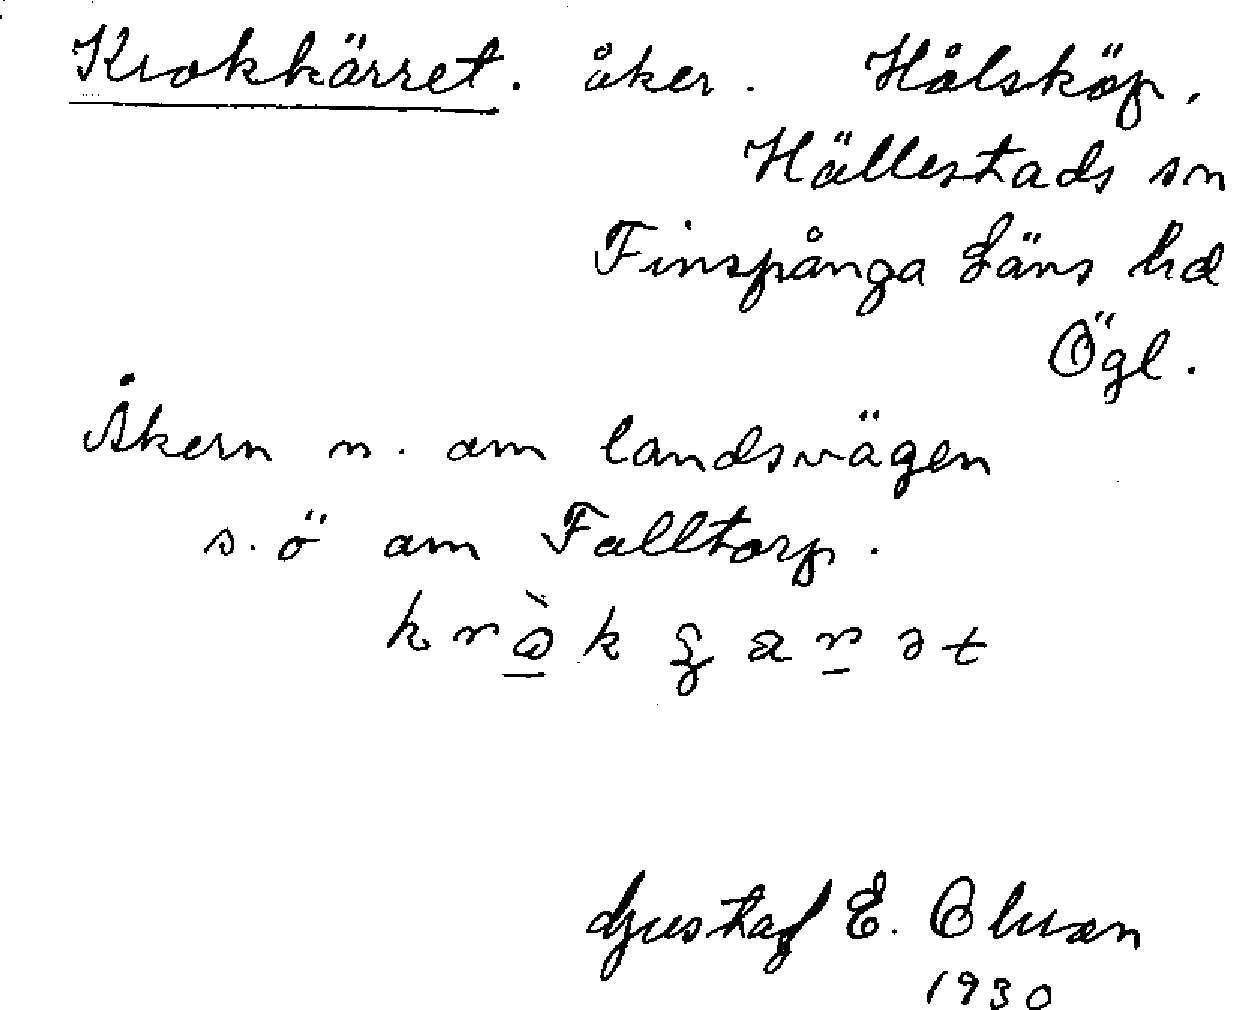 Krokkärret. åker. Hålsköp,
Hällestads sn
Finspånga Läns hd
Ögl.
Åkern n. om landsvägen
s.ö om Falltorp.
Gustaf E.
1930